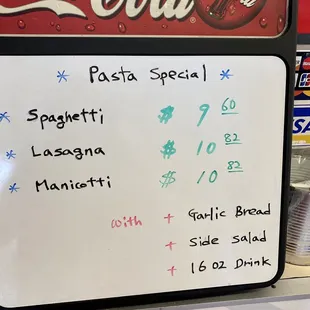 Coca-Cola
* Pasta Special *
* Spaghetti $ 9 60
* Lasagna $ 10 82
* Manicotti $ 10 82
with + Garlic Bread
+ Side Salad
+ 16 oz Drink
VISA